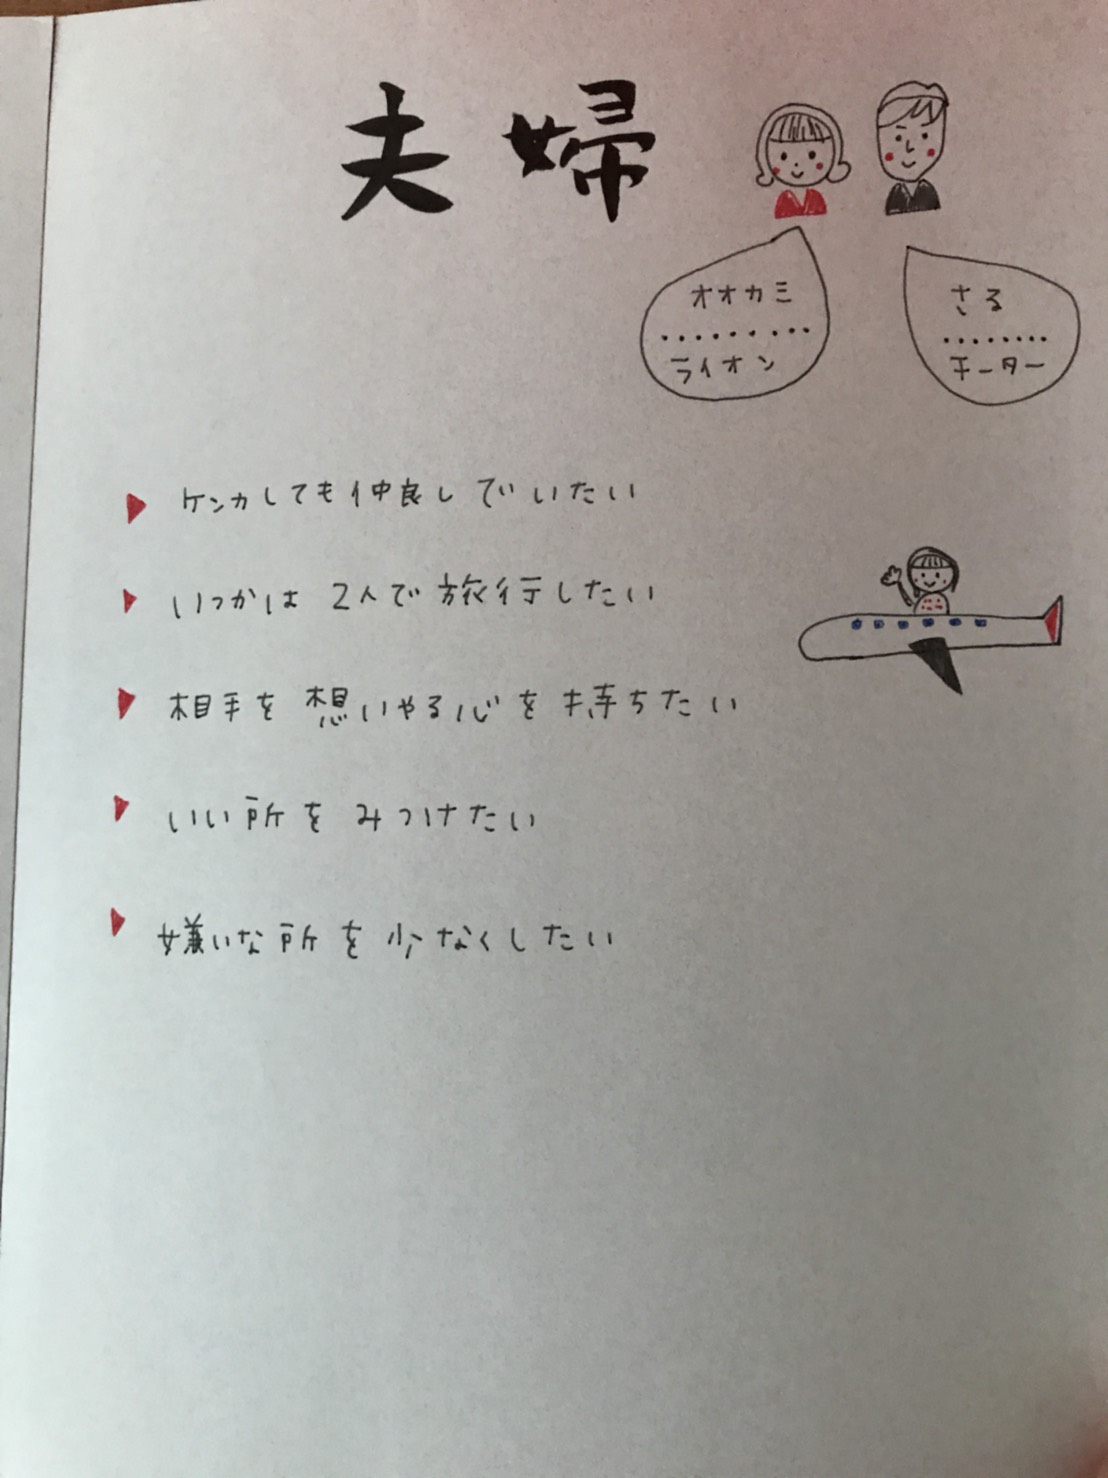 夫婦
オオカミ
ライオン
さる
チーター
ケンカしても仲良しでいたい
いつかは2人で旅行したい
相手を想いやる心を持ちたい
いい所をみつけたい
嫌いな所を少なくしたい